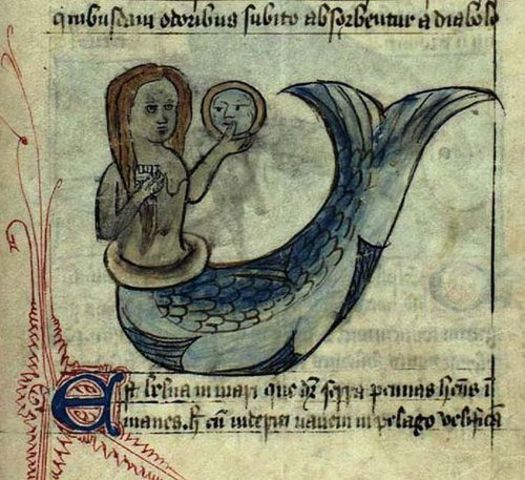 quibusdam odoribus subito absorbentur a diabolo
Est belua in mari que dr̄ serra pennas hn̄s ī
manes. h̄ cū uiderit nauem in pelago velifica